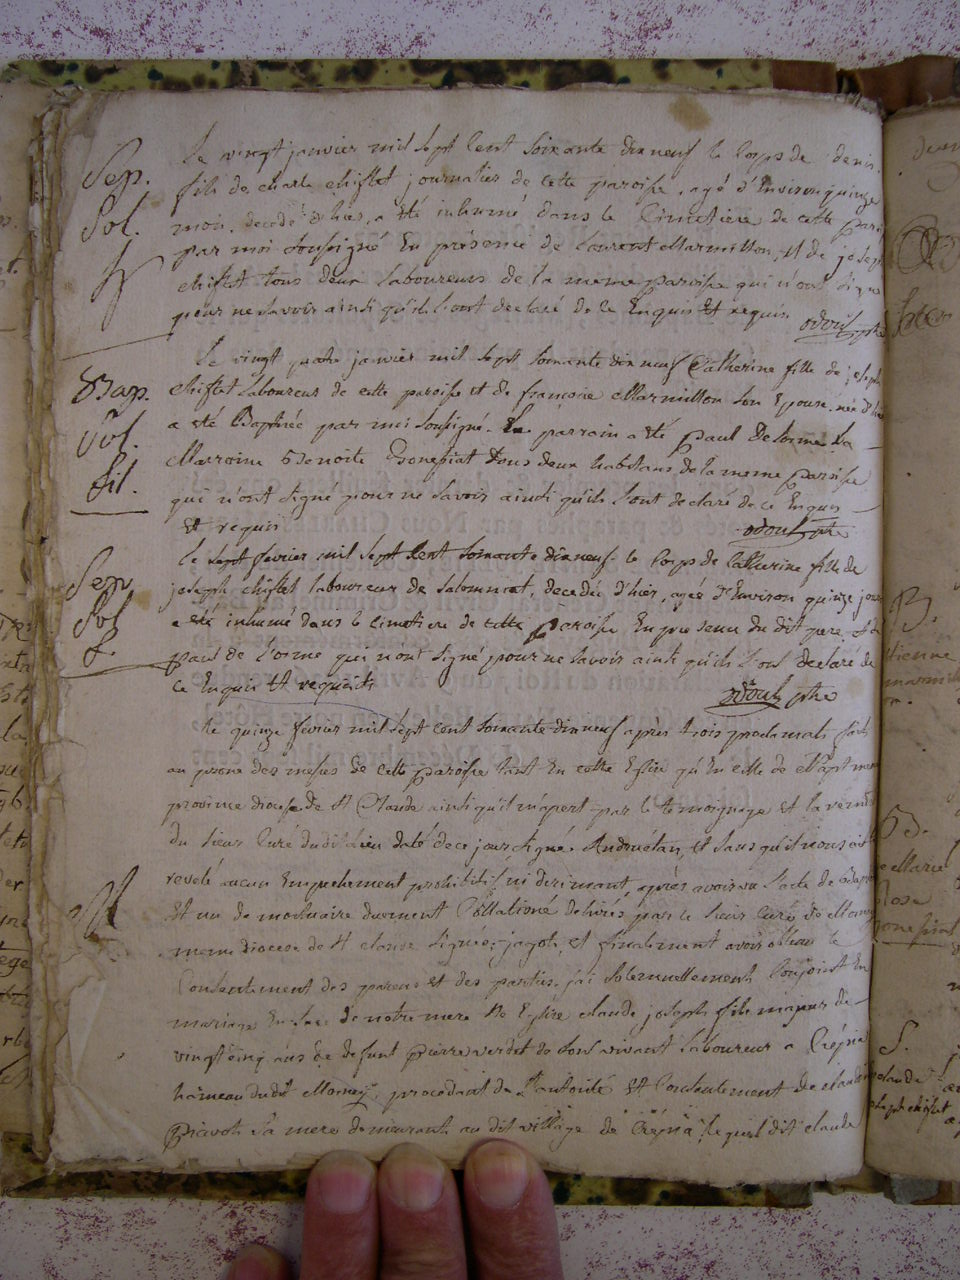 Sep.
Sol.
Le vingt janvier mil sept cent soixante dix neuf le corps de denis
fils de charle chiflet journalier de cette paroisse, agé d'Environ quinze
mois, decedé d'hier, a été inhumé dans le Cimetiere de cette par
par moi soussigné En présence de Laurent Marmillon, et de josep
chiflet tous deux Laboureurs de la meme paroisse qui n'ont signé
pour ne savoir ainsi qu'ils l'ont declaré de ce Enquis Et requis odoul ptre
Bap.
Sol.
fil.
Le vingt quatre janvier mil sept soixante dix neuf Catherine fille de joseph
chiflet Laboureur de cette paroisse et de francoise Marmillon son Epouse, née d'hier
a été Baptisée par moi soussigné. Le parrain a été paul Delorme La
Marraine Benoite Bonepiat tous deux habitans de la meme paroisse
qui n'ont signé pour ne savoir ainsi qu'ils l'ont declaré de ce Enquis
Et requis odoul ptre
Sep.
Sol
f.
Le sept fevrier mil sept cent soixante dix neuf le corps de Catherine fille de
joseph chiflet laboureur de decedée d'hier, agée d'Environ quinze jours
a été inhumé dans le cimetiere de cette paroisse En presence du dit pere, et de
paul de L'orme qui n'ont signé pour ne savoir ainsi qu'ils l'ont declaré de
ce Enquis Et requits odoul ptre
Le quinze fevrier mil sept cent soixante dix neuf après trois proclamats faits
au prone des messes de cette paroisse tant En cette Eglise qu'En celle de
province diocese de St Claude ainsi qu'il m'apert par le temoignage Et la
du sieur Curé du dit Lieu daté de ce jour signé. et sans qu'il nous ait
revelé aucun Empechement prohibitif, ni dirimant, après avoir vu l'acte de
Et un de mortuaire duement Collationé delivrés par le sieur Curé de
meme diocese de St claude signés: jagot, et finalement avoir le
Consentement des parens et des parties, j'ai solemnellement Conjoint En
mariage En de notre mere Ste Eglise claude joseph fils majeur de
vingt cinq ans de defunt pierre verdet de son vivant Laboureur a Crépia
hameau du dit procedant de L'autorité Et Consentement de
sa mere demeurant au dit village de Crépia, lequel dit claude